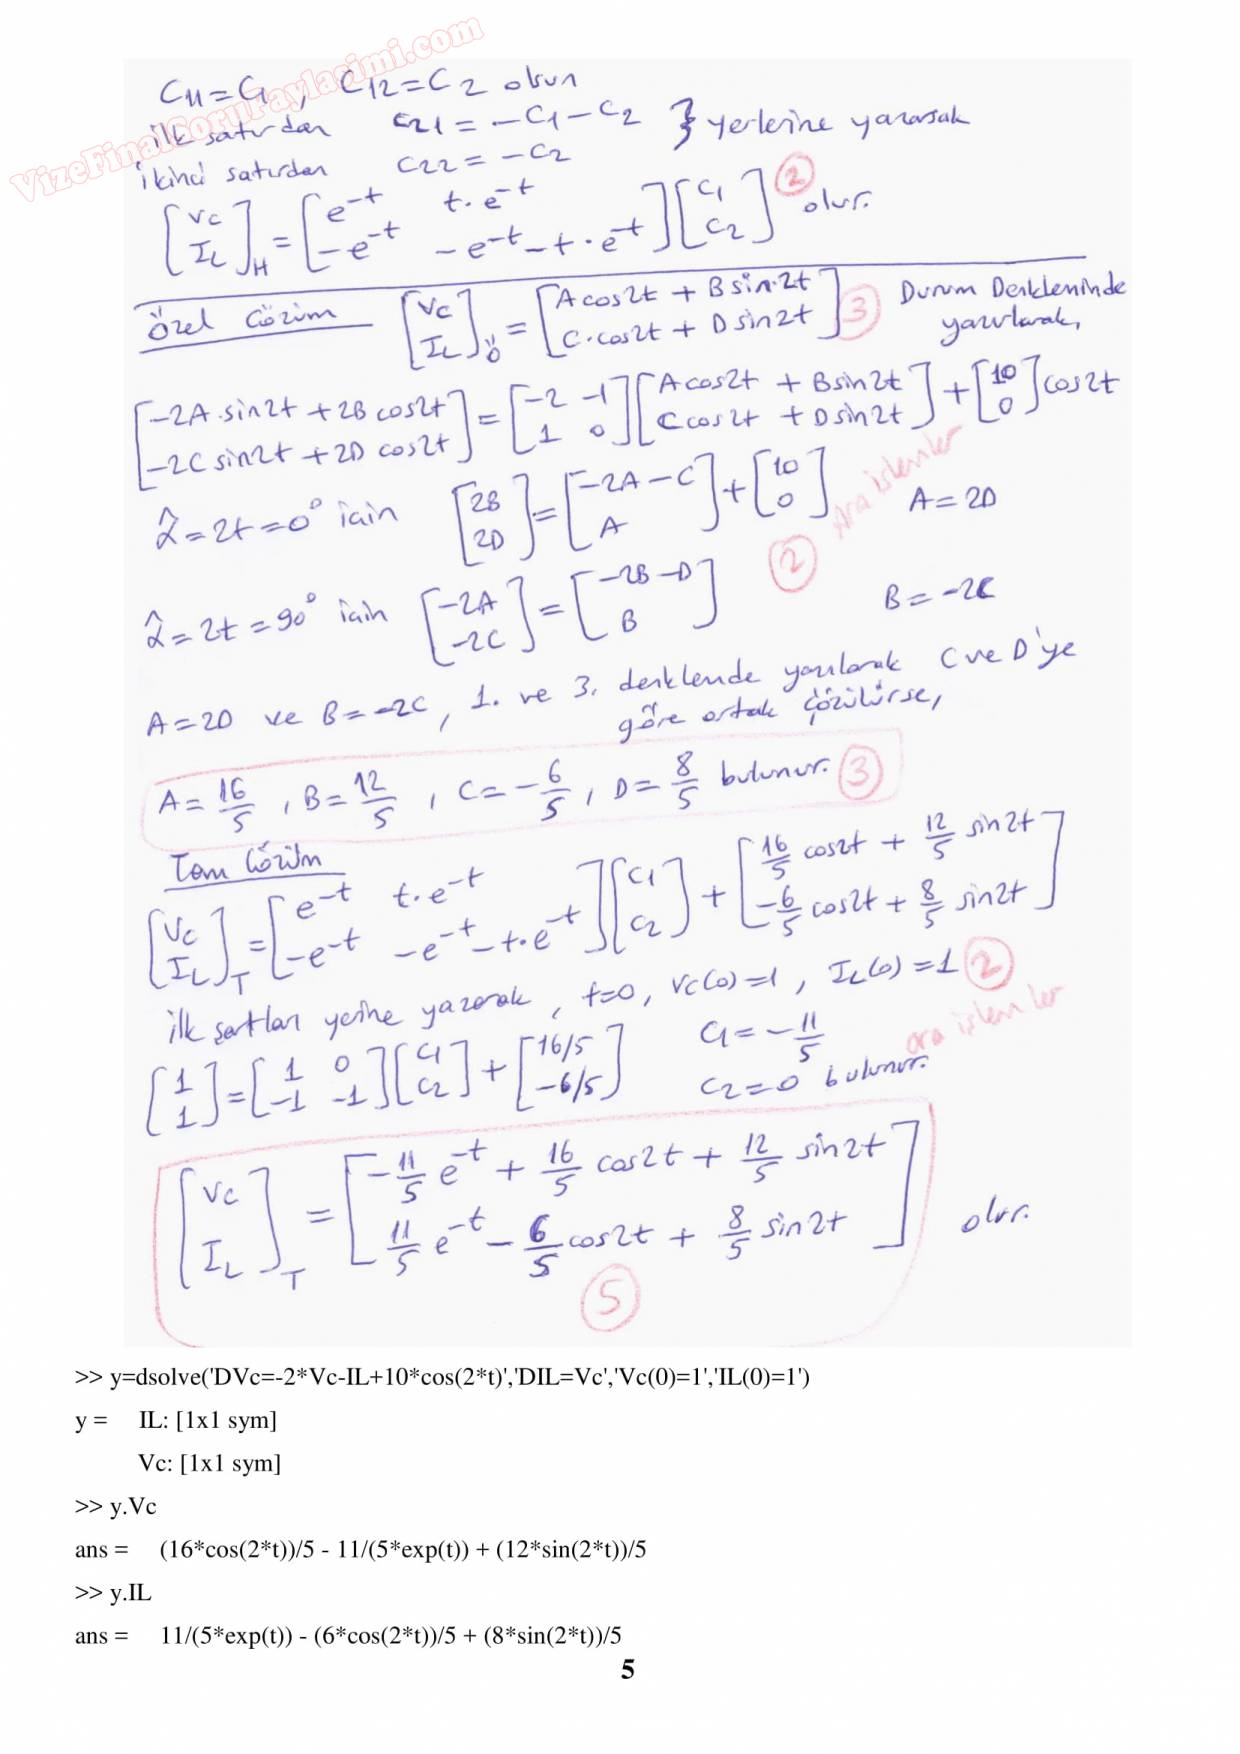 VizeFinalSoruPaylasimi.com
C11=C1, C12=C2 olsun
ilk satırdan C21=-C1-C2
ikinci satırdan C22=-C2 } yerlerine yazarsak
[Vc IL]H = [e^-t t.e^-t; -e^-t -e^-t-t.e^-t][C1 C2] olur. (2)
Özel Çözüm [Vc IL]Ö = [A cos2t + B sin2t; C.cos2t + D sin2t] (3) Durum Denkleminde
yazılarak,
[-2A.sin2t + 2B cos2t; -2C sin2t + 2D cos2t] = [-2 -1; 1 0][A cos2t + B sin2t; C cos2t + D sin2t] + [10 0] cos2t
α̂=2t=0° için [2B 2D] = [-2A-C; A] + [10 0] A=2D
(2) Ara işlemler
α̂=2t=90° için [-2A -2C] = [-2B-D; B] B=-2C
A=2D ve B=-2C, 1. ve 3. denklemde yazılarak C ve D'ye
göre ortak çözülürse,
A=16/5, B=12/5, C=-6/5, D=8/5 bulunur. (3)
Tam Çözüm
[Vc IL]T = [e^-t t.e^-t; -e^-t -e^-t-t.e^-t][C1 C2] + [16/5 cos2t + 12/5 sin2t; -6/5 cos2t + 8/5 sin2t]
ilk şartları yerine yazarak, t=0, Vc(0)=1, IL(0)=1 (2)
ara işlemler
[1 1] = [1 0; -1 -1][C1 C2] + [16/5 -6/5] C1=-11/5
C2=0 bulunur.
[Vc IL]T = [-11/5 e^-t + 16/5 cos2t + 12/5 sin2t; 11/5 e^-t - 6/5 cos2t + 8/5 sin2t] olur.
(5)
>> y=dsolve('DVc=-2*Vc-IL+10*cos(2*t)','DIL=Vc','Vc(0)=1','IL(0)=1')
y = IL: [1x1 sym]
Vc: [1x1 sym]
>> y.Vc
ans = (16*cos(2*t))/5 - 11/(5*exp(t)) + (12*sin(2*t))/5
>> y.IL
ans = 11/(5*exp(t)) - (6*cos(2*t))/5 + (8*sin(2*t))/5
5